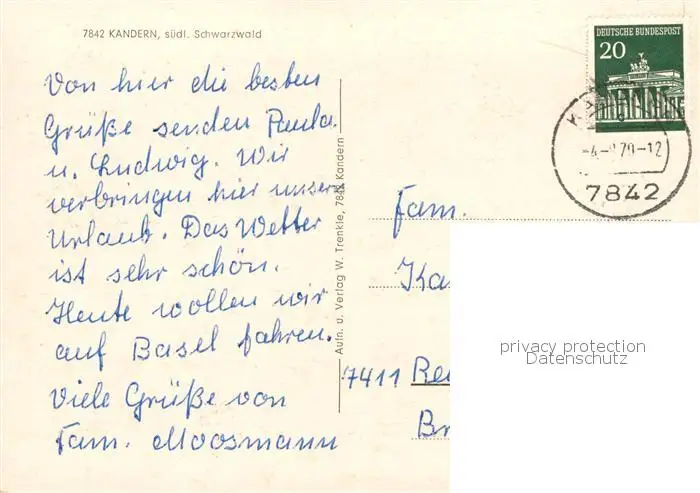 7842 KANDERN, südl. Schwarzwald
Von hier die besten
Grüße senden Paula
u. Ludwig. Wir
verbringen hier unser
Urlaub. Das Wetter
ist sehr schön.
Heute wollen wir
auf Basel fahren.
Viele Grüße von
Fam. Moosmann
Aufn. u. Verlag W. Trenkle, 7842 Kandern
DEUTSCHE BUNDESPOST
20
7842
Fam.
Ka
7411 Reu
Br
privacy protection
Datenschutz